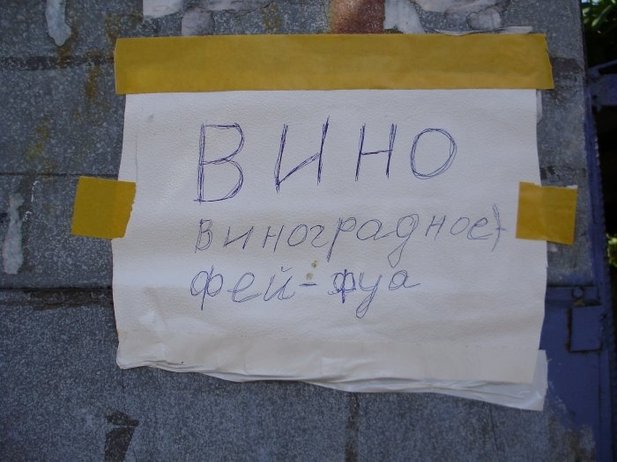 ВИНО
виноградное
фей-фуа